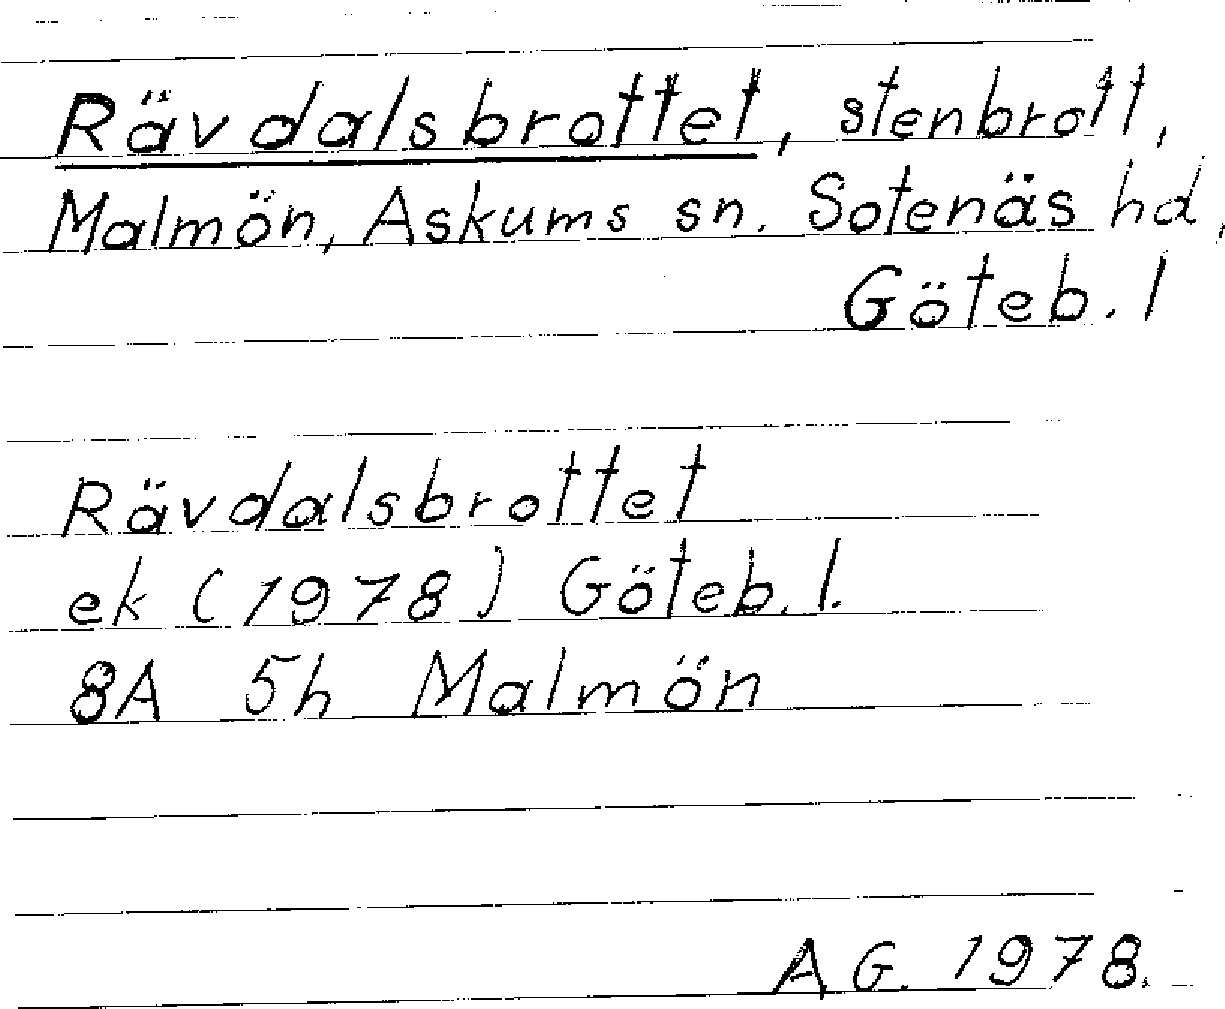 Rävdalsbrottet, stenbrott,
Malmön, Askums sn. Sotenäs hd,
Göteb. l
Rävdalsbrottet
ek (1978) Göteb. l.
8A 5h Malmön
A G. 1978.